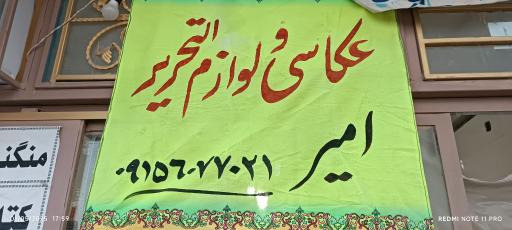 عکاسی و لوازم التحریر
امیر
۰۹۱۵۶۰۷۷۰۲۱
منگنه
05/2025 17:59
REDMI NOTE 11 PRO